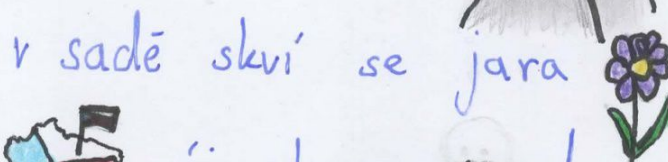 v sadě skví se jara